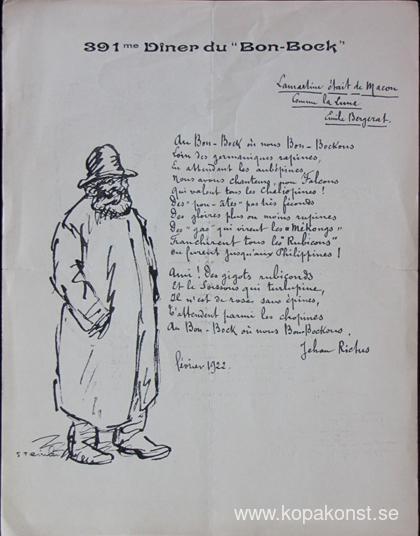 391me Dîner du "Bon-Bock"
Lamartine était de Macon
Comme la Lune.
Emile Bergerat.
Au Bon-Bock où nous Bon-Bockons
Loin des germaniques rapines,
En attendant les aubépines,
Nous avons chanteurs pour Falcons
Qui valent tous les Chaliapines !
Des "pou-ëtes" pas très féconds
Des gloires plus ou moins rupines
Des "gas" qui virent les "Mékongs"
Franchirent tous les "Rubicons"
Ou furent jusqu'aux Philippines !
Ami ! Des gigots rubiconds
Et le Soissons qui turlupine,
Il n'est de roses sans épines,
T'attendent parmi les chopines
Au Bon-Bock où nous Bon-Bockons.
Jehan Rictus
février 1922.
Steinlen
www.kopakonst.se